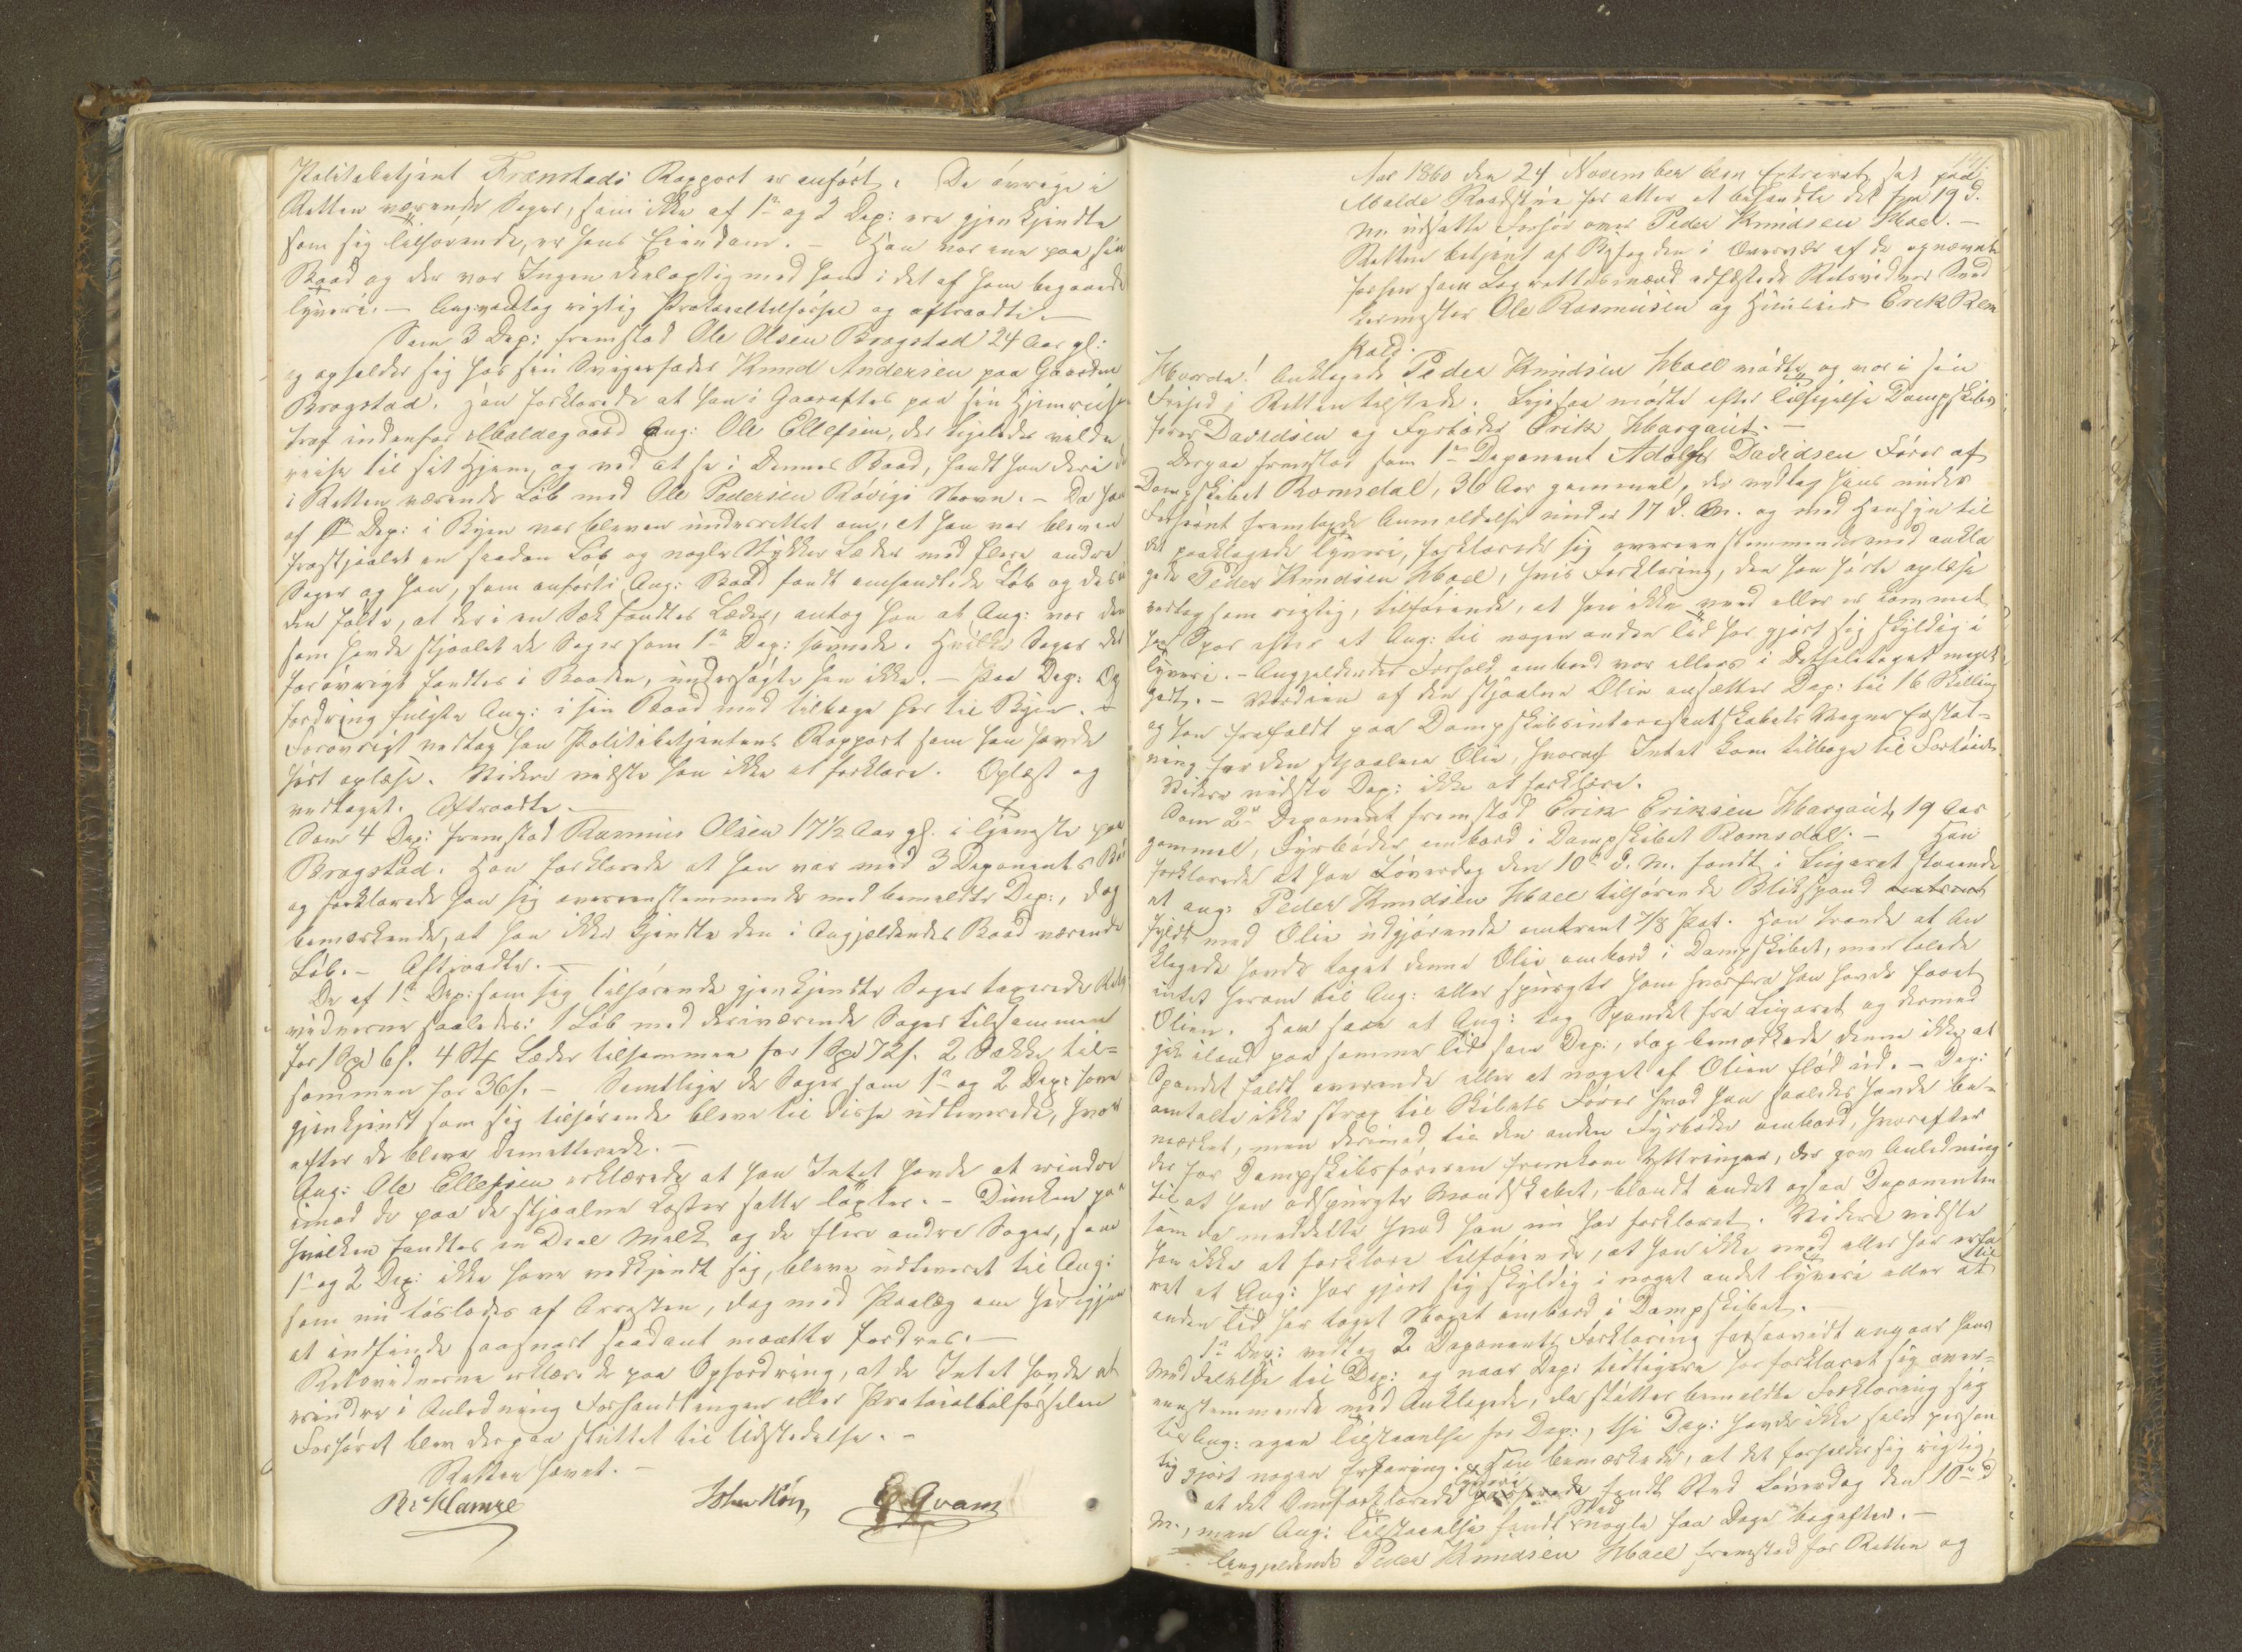 Politibetjent Framstads Rapport er anført. De øvrige i
Retten værende Sager, som ikke af 1ste og 2 Dep: ere gjenkjendte
som sig tilhørende, er hans Eiendom. – Han var ene paa sin
Baad og der var Ingen delagtig med ham i det af ham begaaede
Tyveri. – Ang: vedtog rigtig Protocoltilførsel og aftraadte. –
Som 3 Dep: fremstod Ole Olsen Bragstad 24 Aar gl:
og opholder sig hos sin Svigerfader Knud Andersen paa Gaarden
Bragstad. Han forklarede at han i Gaaraftes paa sin Hjemreise
traf indenfor Moldegaard Ang: Ole Ellefsen, der ligeledes vilde
reise til sit Hjem, og ved at se i Dennes Baad, fandt han deri
i Retten værende Løb med Ole Pedersen Røvigs Navn. – Da han
af 1ste Dep: i Byen var bleven underrettet om, at han var bleven
frastjaalet en saadan Løb og nogle Stykker Læder med flere andre
Sager og han, som anført i Ang: Baad fandt omhandlede Løb og des-
uden følte, at der i en Sæk fandtes Læder, antog han at Ang: var den
som havde stjaalet de Sager som 1ste Dep: savnede. Hvilke Sager der
forøvrigt fandtes i Baaden, undersøgte han ikke. – Paa Dep: Op
fordring fulgte Ang: i sin Baad med tilbage her til Byen. –
Forøvrigt vedtog han Politibetjentens Rapport som han havde
hørt oplæse. Videre vidste han ikke at forklare. Oplæst og
vedtaget. Aftraadte. –
Som 4 Dep: fremstod Rasmus Olsen 17½ Aar gl. i Tjeneste paa
Bragstad. Han forklarede at han var med 3 Deponents
og forklarede han sig overensstemmende med bemeldte Dep:, dog
bemærkende, at han ikke kjendte den i Angjældendes Baad værende
Løb. – Aftraadte. –
De af 1ste Dep: som sig tilhørende gjenkjendte Sager taxerede Rets
vidnerne saaledes: 1 Løb med deriværende Sager tilsammen
for 1 Spd 6 s. 4 Stk Læder tilsammen for 1 Spd 72 s. 2 Sække til-
sammen for 36 s. – Samtlige de Sager som 1ste og 2 Dep: have
gjenkjendt som sig tilhørende bleve til disse udleverede, hvor
efter de bleve demitterede. –
Ang: Ole Ellefsen erklærede at han Intet havde at erindre
imod de paa de stjaalne Koster satte Taxter. – Dunken paa
hvilken fandtes en Deel Melk og de flere andre Sager, som
1ste og 2 Dep: ikke have vedkjendt sig, bleve udleveret til Ang:
som nu løslodes af Arresten, dog med Paalæg om her igjen
at indfinde saasnart saadant maatte fordres. –
Retsvidnerne erklærede paa Opfordring, at de Intet havde at
erindre i Anledning Forhandlingen eller Protocoltilførselen
Forhøret blev derpaa sluttet til Udstedelse. –
Retten hævet. –
E. Qvam
Aar 1860 den 24 November blev Extraret sat paa
Molde Raadstue for atter at behandle det fra 19 d.
M. udsatte Forhør over Peder Knudsen Moll. –
Retten betjent af Byfogden i Overvær af de opnævnte
forhen som Lagrettesmænd edfæstede Retsvidner Sned
kermester Ole Rasmusen og Huuseier Erek Rem
Hvorda! Anklagede Peder Knudsen Moll mødte og var i sin
Frihed i Retten tilstede. Ligesaa mødte efter Tilsigelse Dampskibs
fører Davidsen og Fyrbøder Erik Margaut. –
Derpaa fremstod som 1ste Deponent Adolph Davidsen Fører af
Dampskibet Romsdal, 36 Aar gammel, der vedtog hans under
Forhøret fremlagde Anmeldelse under 17 d. M. og med Hensyn til
det paaklagede Tyveri, forklarede sig overeensstemmende med ankla
gede Peder Knudsen Moll, hvis Forklaring, den han hørte oplæse
vedtog som rigtig, tilføiende, at han ikke veed eller er kommet
paa Spor efter at Ang: til nogen anden Tid har gjort sig skyldig i
Tyveri. – Angjældendes Forhold ombord var ellers i Detheletaget meget
godt. – Værdien af den stjaalne Olie ansætter Dep: til 16 Skilling
og han frafaldt paa Dampskibsinteressentskabets Vegne Erstat-
ning for den stjaalne Olie, hvoraf Intet kom tilbage til Fartøiet.
Videre vidste Dep: ikke at forklare.
Som 2den Deponent fremstod Erik Eriksen Margaut, 19 Aar
gammel, Fyrbøder ombord i Dampskibet Romsdal. – Han
forklarede at han Løverdag den 10de d. M. fandt i Lugaret staaende
et Ang: Peder Knudsen Moll tilhørende Blikspand omtrent
fyldt med Olie udgjørende omtrent 7/8 Pot. Han troede at An
klagede havde taget denne Olie ombord i Dampskibet, men talede
intet herom til Ang: eller spurgte ham hvorfra han havde faaet
Olien. Han saae at Ang: tog Spandet fra Lugaret og dermed
gik iland paa samme Tid som Dep:, dog bemærkede denne ikke at
Spandet faldt overende eller at noget af Olien flød ud. – Dep:
omtalte ikke strax til Skibets Fører hvad han saaledes havde be-
mærket, men derimod til den anden Fyrbøder ombord, hvorefter
der for Dampskibsføreren fremkom Yttringer, der gav Anledning
til at han adspurgte Mandskabet, blandt andet ogsaa Deponenten
som da meddelte hvad han nu har forklaret. Videre vidste
han ikke at forklare tilføiende, at han ikke veed eller har erfa
ret at Ang: har gjort sig skyldig i noget andet Tyveri eller at til
anden Tid har taget Noget ombord i Dampskibet. –
1ste Dep: vedtog 2 Deponents Forklaring forsaavidt angaar hans
Meddelelse til Dep: og naar Dep: tidligere har forklaret sig over-
eensstemmende med Anklagede, da støtter bemeldte Forklaring sig
til Ang: egen Tilstaaelse for Dep:, thi Dep: havde ikke selv person
lig gjort nogen Erfaring. Han bemærkede, at det forholder sig rigtig,
at det Omforklarede Tyveri fandt Sted Løverdag den 10de d
M., men Ang: Tilstaaelse fandt Sted nogle faa Dage bagefter. –
Angjældende Peder Knudsen Moll fremstod for Retten og